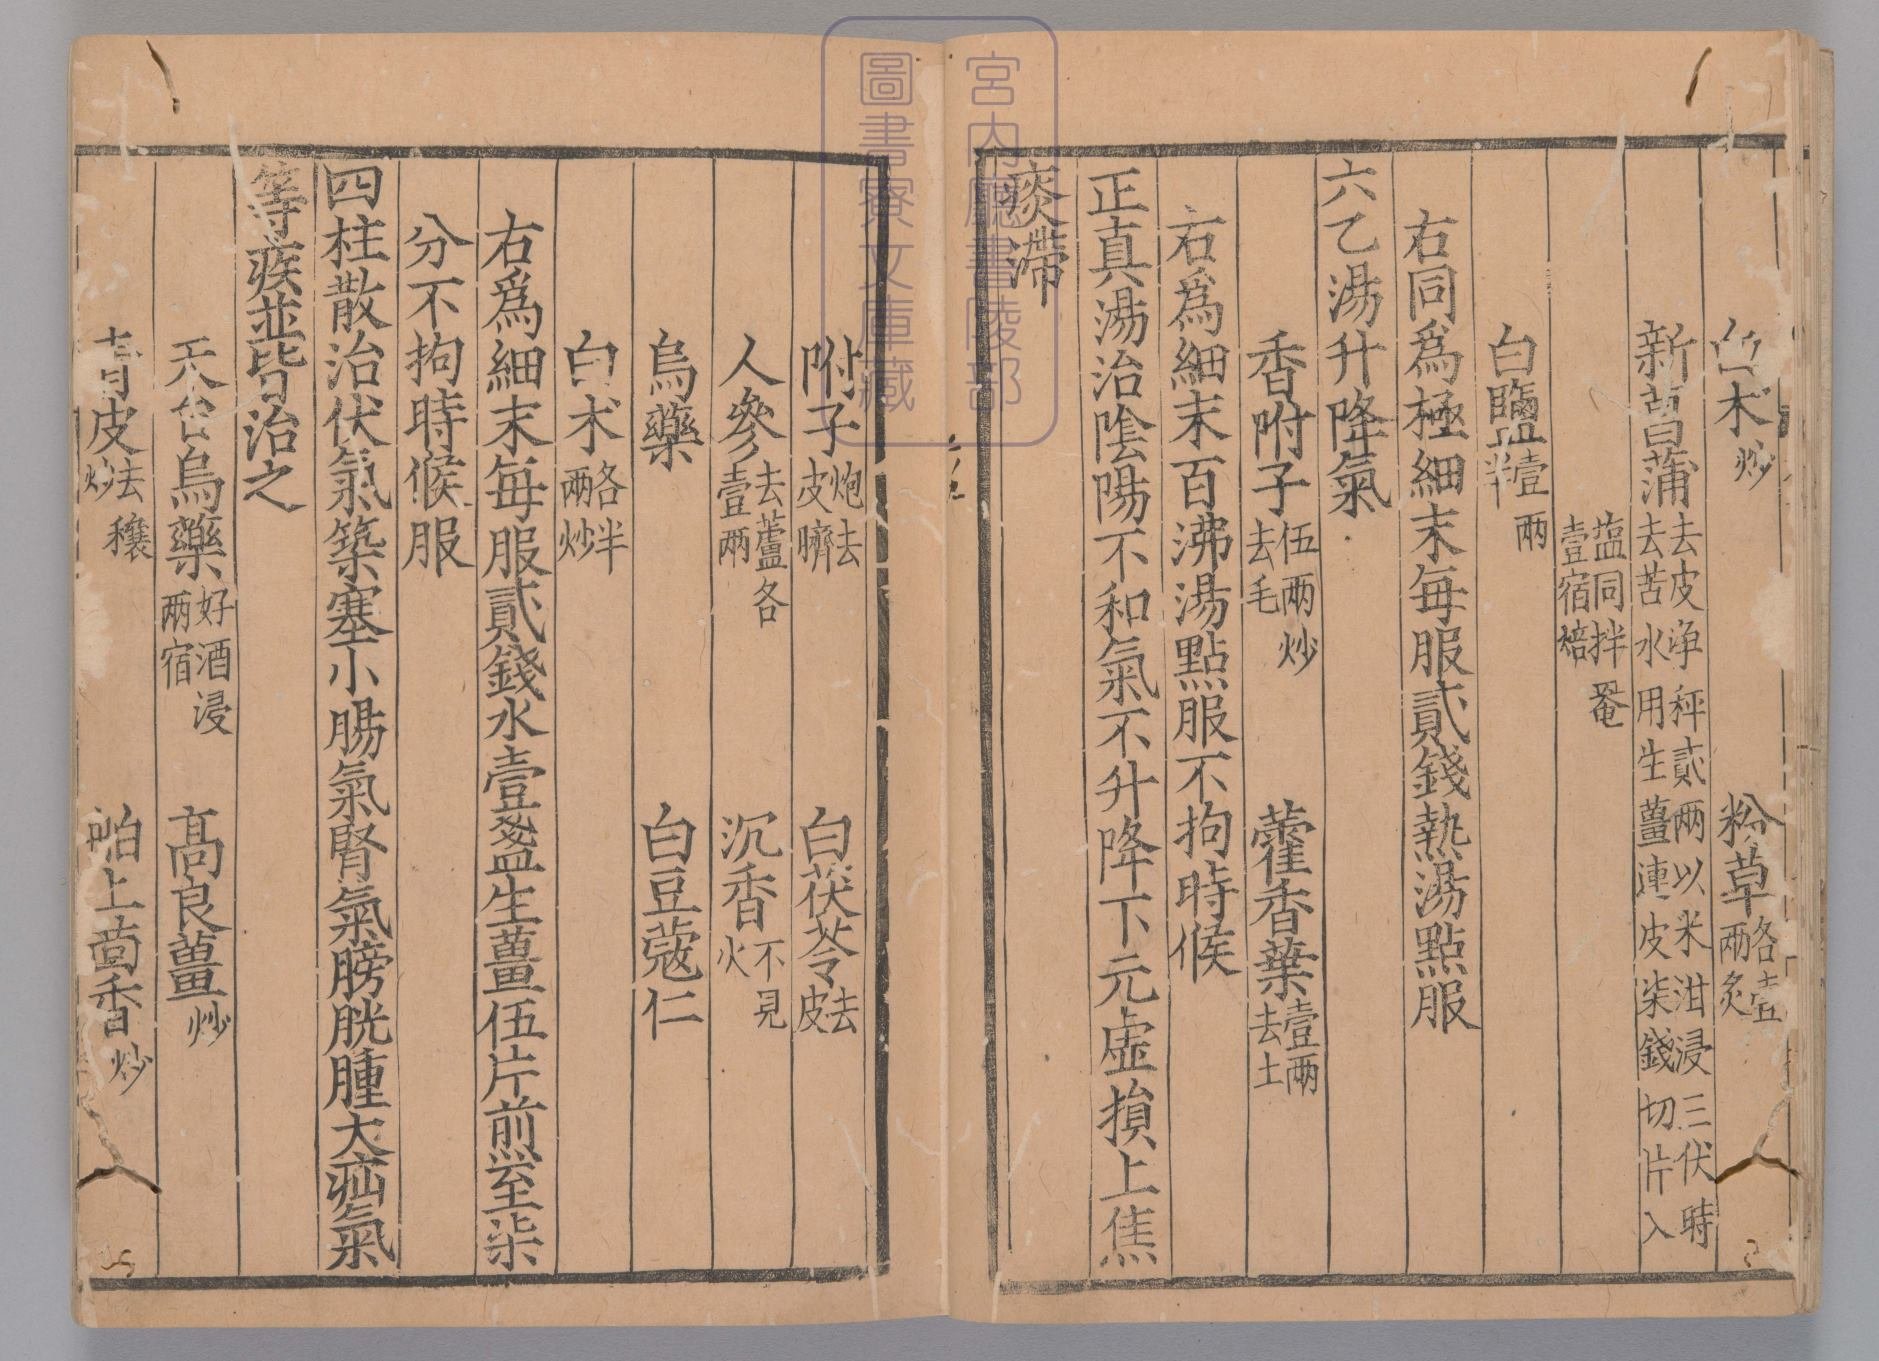 白术炒　粉草各壹兩炙
新菖蒲去皮淨秤貳两以米泔浸三伏時去苦水用生薑連皮柒錢切片入
塩同拌罨壹宿焙
白鹽壹兩半
右同爲極細末每服貳錢熱湯點服
六乙湯升降氣
香附子伍兩炒去毛　藿香葉壹兩去土
右爲細末百沸湯點服不拘時候
正真湯治陰陽不和氣不升降下元虛損上焦
痰滯
附子炮去皮臍　白茯苓去皮
人參去蘆各壹兩　沉香不見火
烏藥　白豆蔻仁
白术各半兩炒
右爲細末每服貳錢水壹盞生薑伍片煎至柒
分不拘時候服
四柱散治伏氣築塞小腸氣腎氣膀胱腫大疝氣
等疾並皆治之
天台烏藥好酒浸两宿　髙良薑炒
青皮去穰炒　舶上茴香炒
宮内廳書陵部
圖書寮文庫藏